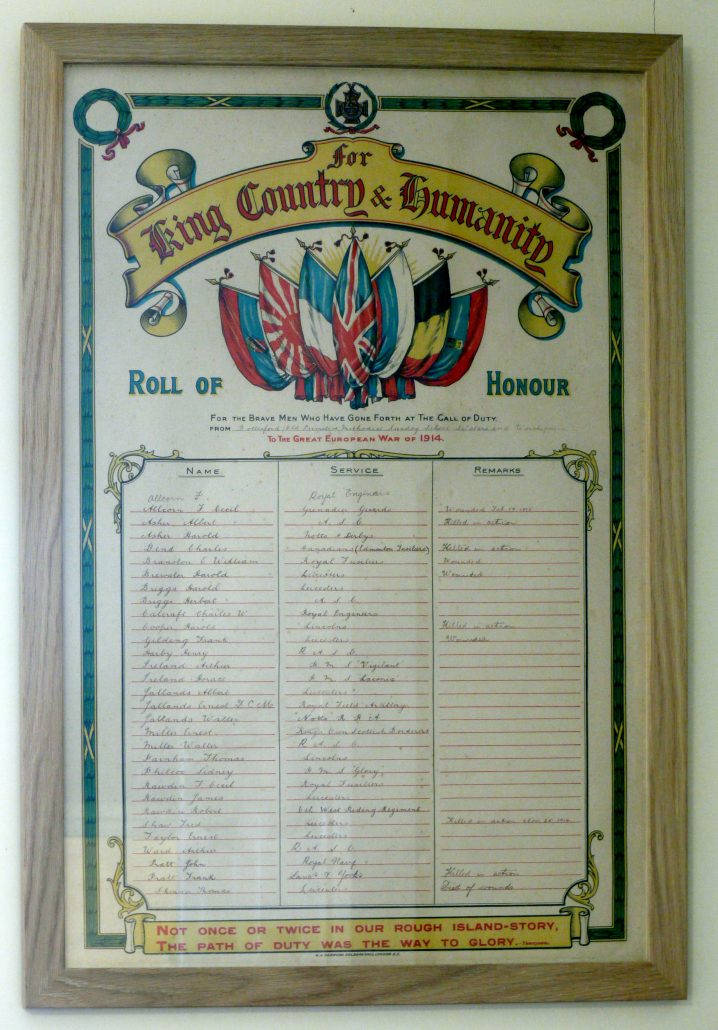 For
King Country & Humanity
ROLL OF HONOUR
FOR THE BRAVE MEN WHO HAVE GONE FORTH AT THE CALL OF DUTY.
FROM Bottesford Primitive Methodist Sunday School
TO THE GREAT EUROPEAN WAR OF 1914.
NAME SERVICE REMARKS
Allcorn F. Royal Engineers
Allcorn F Cecil Grenadier Guards Wounded Feb
Asher Albert A. S. C Killed in action
Asher Harold Notts & Derbys
Bend Charles Canadians (Edmonton Fusiliers) Killed in action
Branston C William Royal Fusiliers Wounded
Brewster Harold Leicesters Wounded
Briggs Harold Leicesters
Briggs A. S. C
Calcraft Charles W Royal Engineers
Cooper Harold Lincolns Killed in action
Gilding Frank Leicesters Wounded
Harby Henry R A S C
Ireland Arthur H M S "Vigilant"
Ireland Horace H M S "Laconia"
Jallands Albert Leicesters
Jallands Ernest Royal Field Artillery
Jallands Walter Notts R H A
Miller Ernest Kings Own Scottish Borderers
Miller Walter R A S C
Parnham Thomas Lincolns
Philcox Sidney H M S "Glory"
Rawden F Cecil Royal Fusiliers
Rawden James Leicesters
Rawden Robert 6th West Riding Regiment
Shaw Fred Leicesters Killed in action
Taylor Ernest Leicesters
Ward Arthur R A S C
Pratt John Royal Navy
Pratt Frank Killed in action
Thomas Leicesters Died of wounds
NOT ONCE OR TWICE IN OUR ROUGH ISLAND-STORY,
THE PATH OF DUTY WAS THE WAY TO GLORY.- TENNYSON.